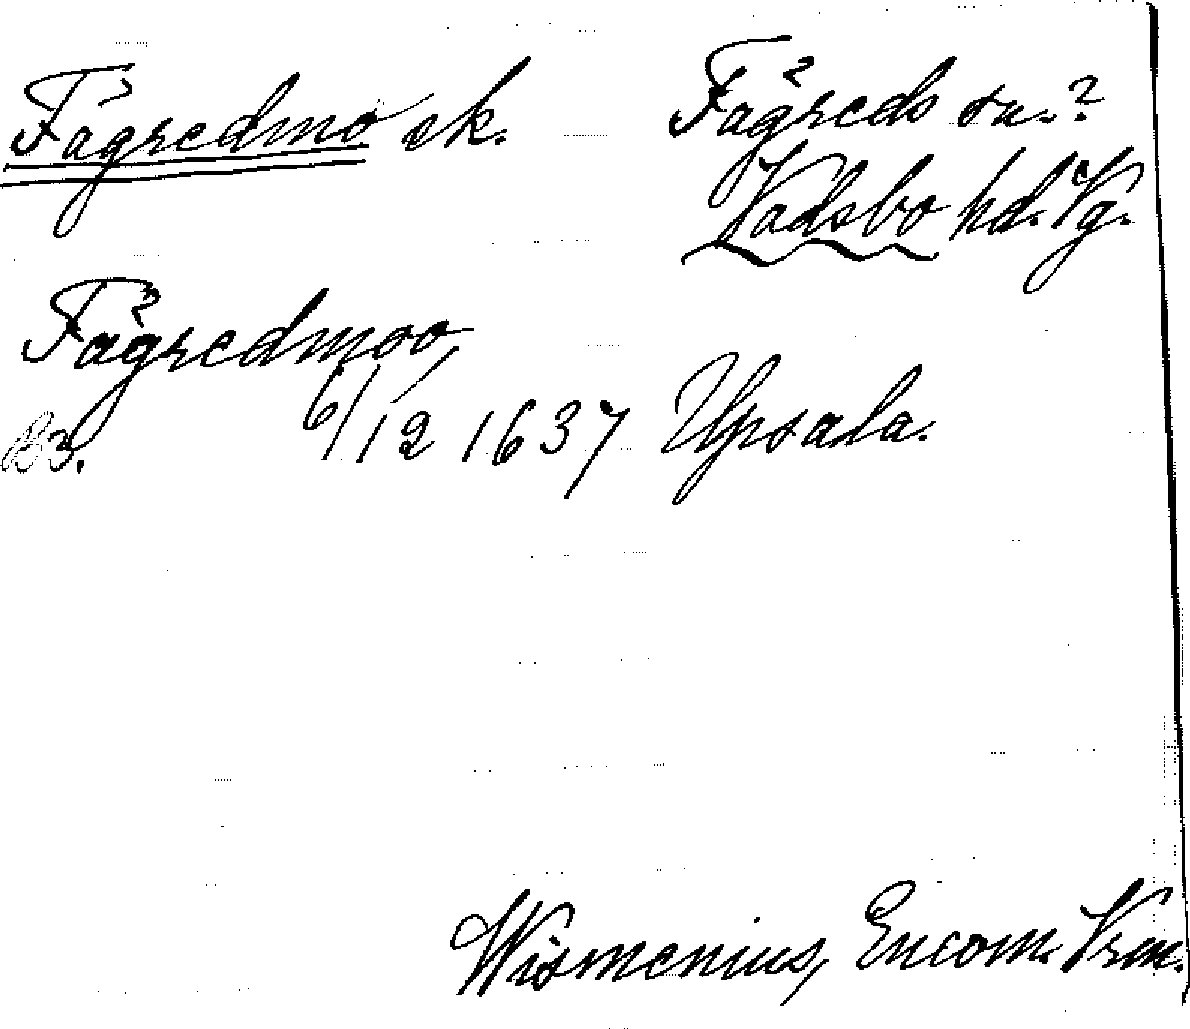 Fågredmo sk. Fågreds sn.?
Vadsbo hd. Vg.
Fågredmoo,
B3. 6/12 1637 Upsala.
Wismenius, Encom. Vrm.